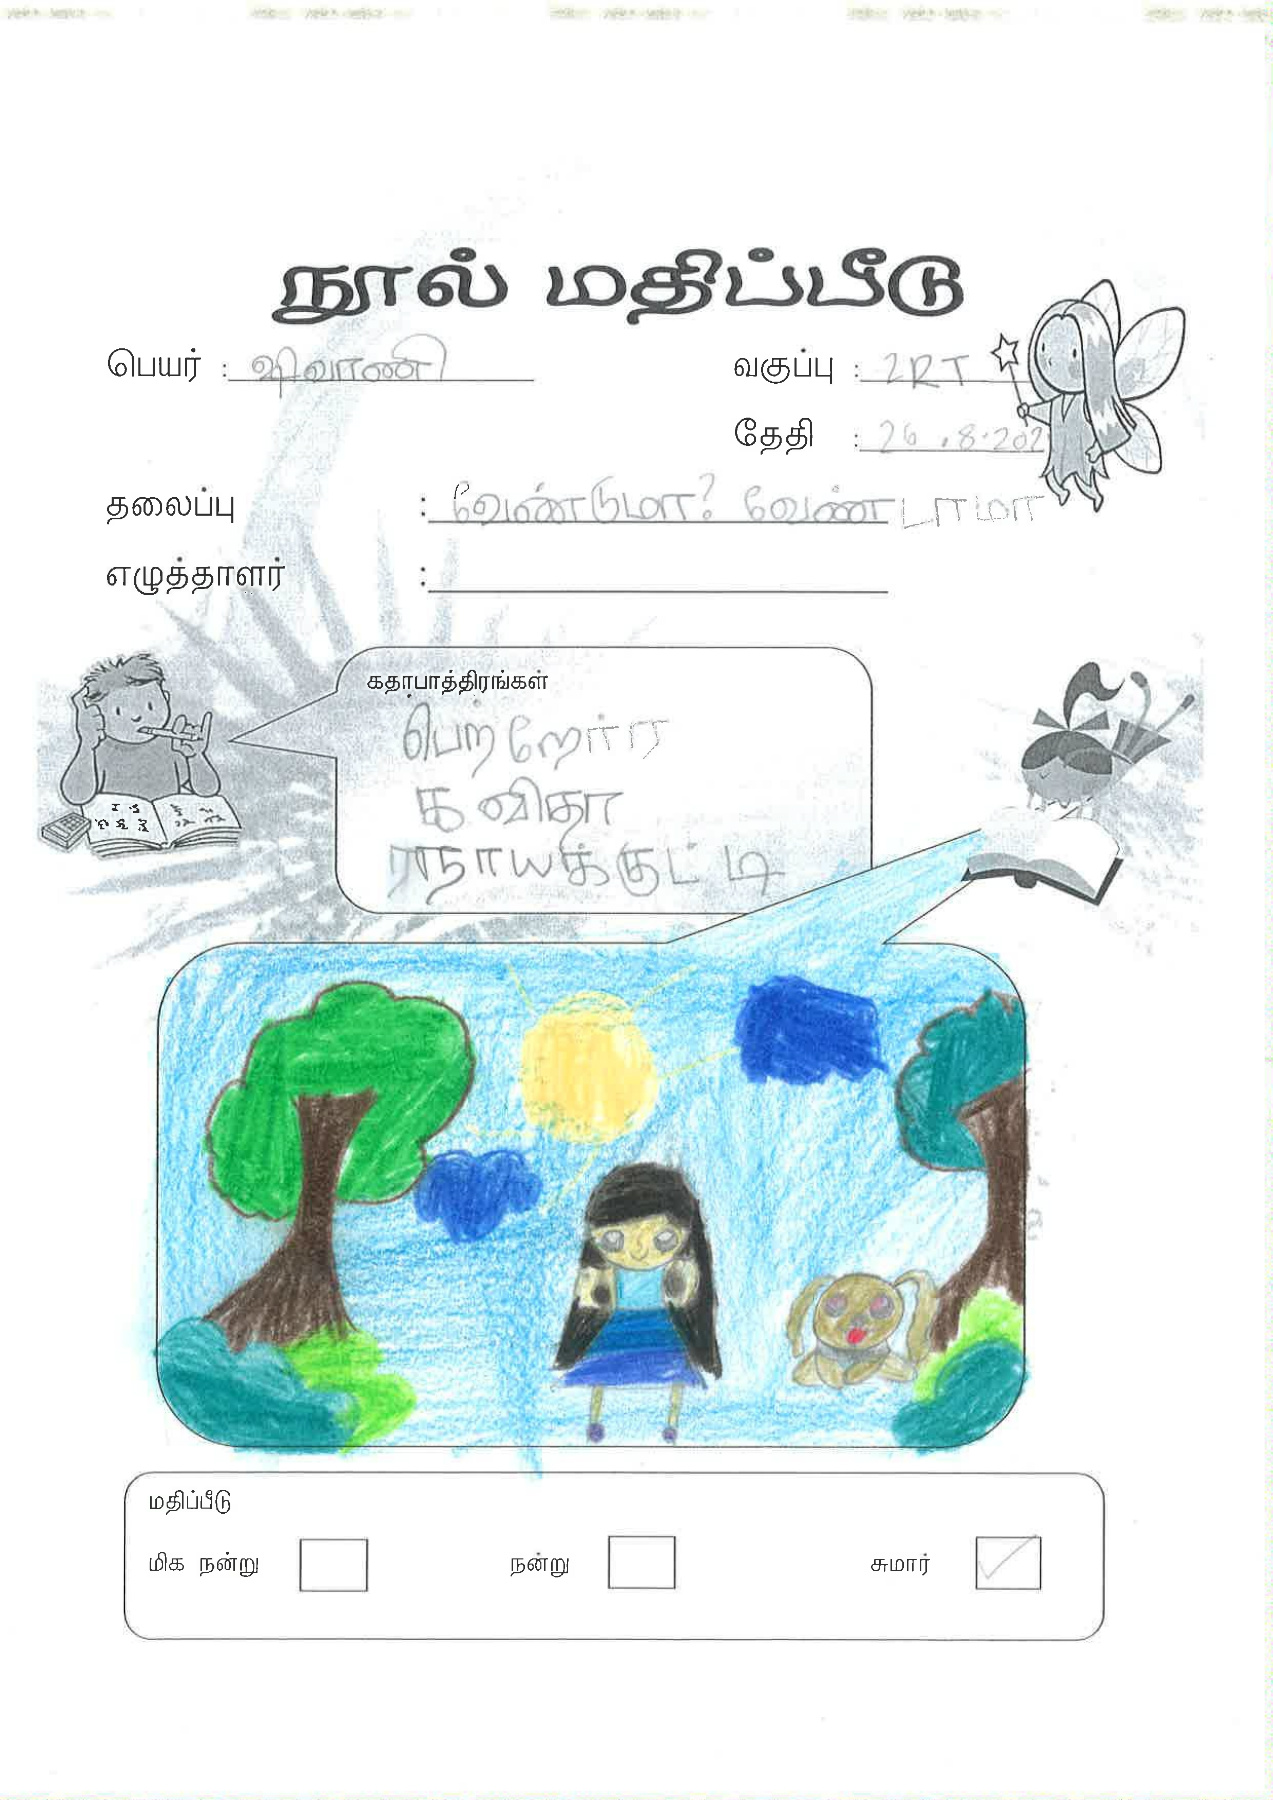 நூல் மதிப்பீடு
பெயர் : ஷிவாணி
வகுப்பு : 2RT
தேதி : 26.8.202
தலைப்பு : வேண்டுமா? வேண்டாமா
எழுத்தாளர் :
கதாபாத்திரங்கள்
பெற்றோர்
கவிதா
நாயக்குட்டி
மதிப்பீடு
மிக நன்று
நன்று
சுமார்